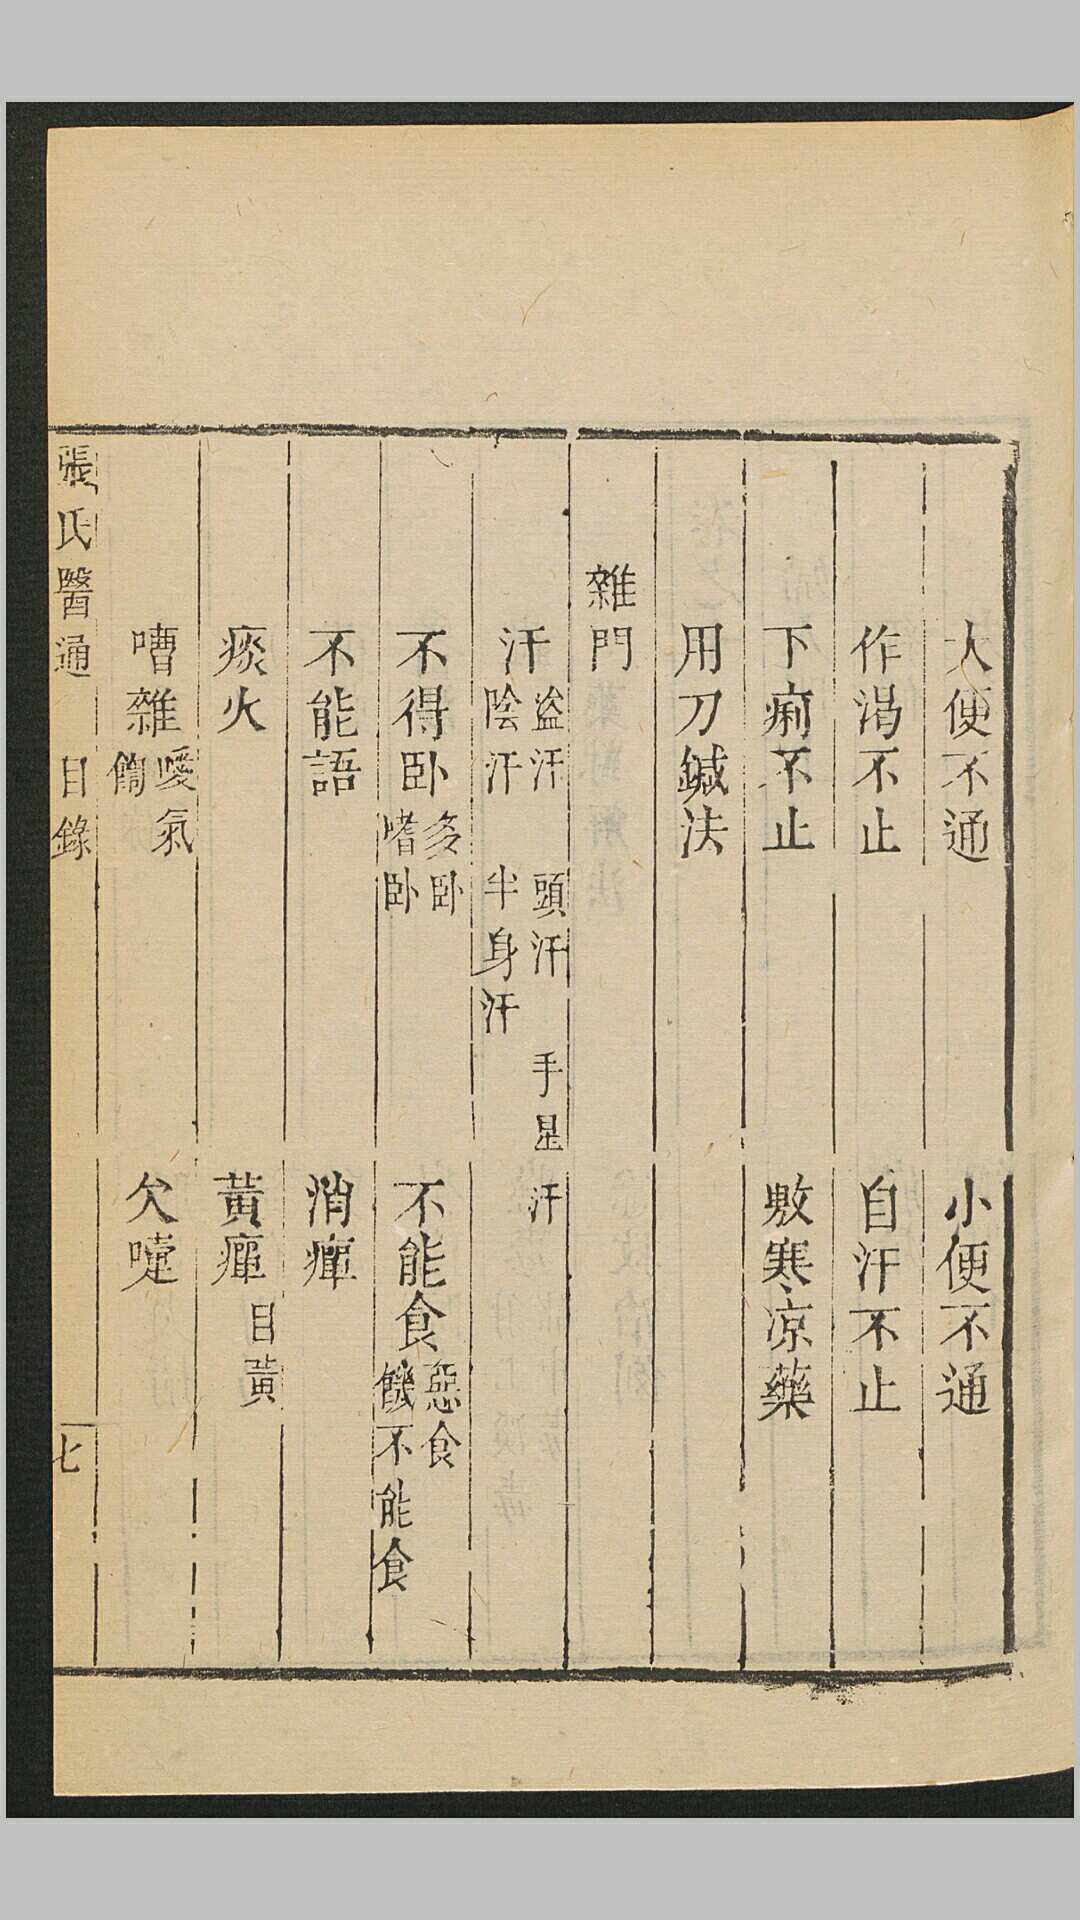 大便不通　小便不通
作渴不止　自汗不止
下痢不止　敷寒凉藥
用刀鍼法
雜門
汗　盜汗　頭汗　手足汗
陰汗　半身汗
不得卧　多卧　嗜卧　不能食　惡食　饑不能食
不能語　消癉
痰火　黃癉　目黃
嘈雜　噯氣　欠嚏
張氏醫通　目錄　七